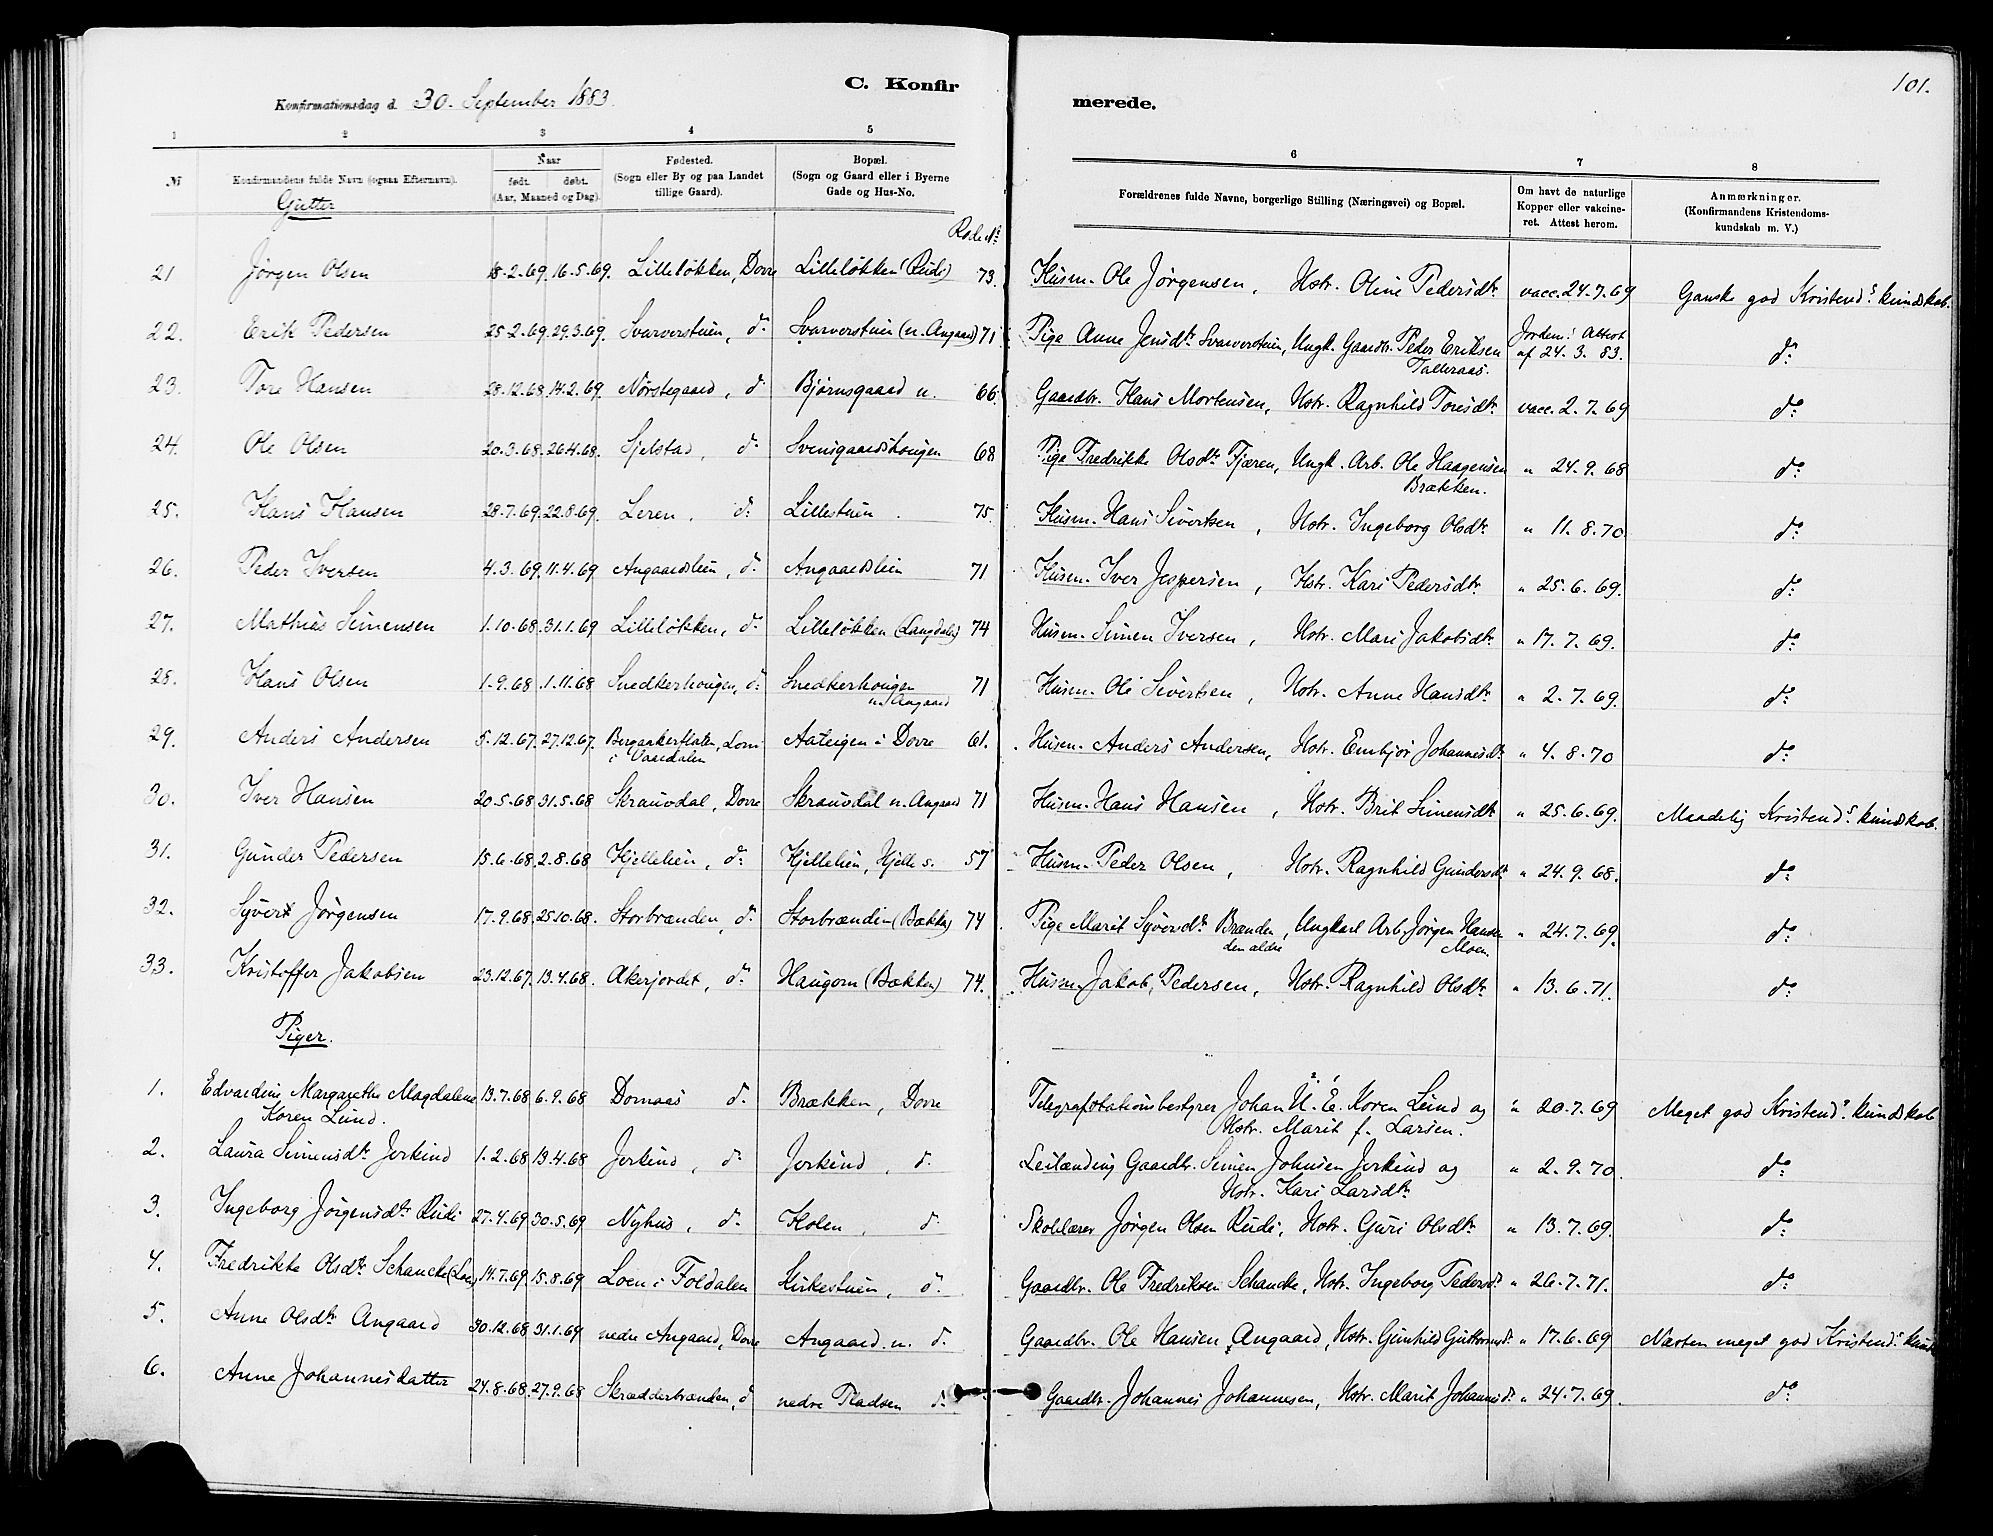 101.
C. Konfirmerede.
Konfirmationsdag d. 30. September 1883.
1 2 3 4 5 6 7 8
№ Konfirmandens fulde Navn (ogsaa Efternavn). Naar født. døbt. (Aar, Maaned og Dag). Fødested. (Sogn eller By og paa Landet tillige Gaard). Bopæl. (Sogn og Gaard eller i Byerne Gade og Hus-No. Forældrenes fulde Navne, borgerlige Stilling (Næringsvei) og Bopæl. Om havt de naturlige Kopper eller vakcineret. Attest herom. Anmærkninger. (Konfirmandens Kristendomskundskab m. V.)
Gutter
21 Jørgen Olsen 18.2.69. 16.5.69. Lilleløkken, Dovre Lilleløkken (Rudi) 73. Husm. Ole Jørgensen, Hstr. Oline Pedersdtr. vacc. 24.7.69 Ganske god Kristends. kundskab.
22. Erik Pedersen 25.2.69. 29.3.69. Svarverstuen, do. Svarverstuen (n. Angaard) 71 Pige Anne Jensdtr. Svarverstuen, Ungk. Gaardbr. Peder Eriksen Jordem. Attest af 24.3.83. do
Talleraas.
23. Tore Hansen 28.12.68 14.2.69. Nørstegaard, do Bjørnsgaard n. 66. Gaardbr. Hans Mortensen, Hstr. Ragnhild Toresdtr. vacc. 2.7.69 do
24. Ole Olsen 20.3.68. 26.4.68. Sjelstad, do. Svensgaardshougen 68 Pige Fredrikke Olsdtr. Tjæren, Ungk. Arb. Ole Haagensen " 24.9.68 do
Brækken.
25. Hans Hansen 28.7.69. 22.8.69. Leren, do: Lillestuen. 75. Husm. Hans Sivertsen, Hstr. Ingeborg Olsdtr. " 11.8.70. do:
26. Peder Iversen 4.3.69. 11.4.69 Angaardslien, do. Angaardslien 71 Husm. Iver Jespersen, Hstr. Kari Pedersdtr. " 25.6.69. do:
27. Mathias Simensen 1.10.68. 31.1.69 Lilleløkken, do. Lilleløkken (Langdalen) 74 Husm. Simen Iversen, Hstr. Mari Jakobsdtr. " 17.7.69. do:
28. Hans Olsen 1.9.68. 1.11.68 Snedkerhougen, do: Snedkerhougen 71 Husm. Ole Sivertsen, Hstr. Anne Hansdtr. " 2.7.69. do:
n. Angaard
29. Anders Andersen 5.12.67. 27.12.67. Bergaakerflaten, Lom Aateigen i Dovre 61. Husm. Anders Andersen, Hstr. Embjør Johannesdtr. " 4.8.70 do:
i Vaardalen
30. Iver Hansen 20.5.68 31.5.68 Skrauvdal, Dovre Skrauvdal n. Angaard 71 Husm. Hans Hansen, Hstr. Brit Simensdtr. " 25.6.69. Maadelig Kristends. kundskab.
31. Gunder Pedersen 15.6.68. 2.8.68 Kjellelien, do: Kjellelien, Kjelle s. 57 Husm. Peder Olsen, Hstr. Ragnhild Gundersdtr. " 24.9.68. do:
32. Syvert Jørgensen 17.9.68 25.10.68. Storbrænden, do: Storbrænden (Bækken) 74 Pige Marit Syversdtr. Brænden, Ungkarl Arb. Jørgen Hansen " 24.7.69. do:
den ældre Moen.
33. Kristoffer Jakobsen 23.12.67. 13.4.68. Akerjordet, do: Haugom (Bækken) 74. Husm. Jakob Pedersen, Hstr. Ragnhild Olsdtr. " 13.6.71. do:
Piger.
1. Edvardine Margarethe Magdalene 13.7.68 6.9.68 Domaas do. Brækken, Dovre Telegrafstationsbestyrer Johan U. E. Koren Lund og " 20.7.69 Meget god Kristends. kundskab
Koren Lund. Hstr. Marit f. Larsen.
2. Laura Simensdtr. Jerkind 1.2.68 13.4.68 Jerkind, do. Jerkind, do. Leilænding Gaardbr. Simen Johnsen Jerkind og " 2.9.70. do:
Hstr. Kari Larsdtr.
3. Ingeborg Jørgensdtr. Rudi 27.4.69 30.5.69 Nyhus, do. Holen, do. Skolelærer Jørgen Olsen Rudi, Hstr. Guri Olsdtr. " 13.7.69. do:
4. Fredrikke Olsdtr. Schancke (Loen) 14.7.69. 15.8.69 Loen i Foldalen Kirkestuen, do. Gaardbr. Ole Fredriksen Schancke, Hstr. Ingeborg Pedersdtr. " 26.7.71. do:
5. Anne Olsdtr. Angaard 30.12.68 31.1.69 nedre Angaard, Dovre Angaard n. do. Gaardbr. Ole Hansen Angaard, Hstr. Gunhild Guttormsdtr. " 17.6.69 Næsten meget god Kristends. kund
6. Anne Johannesdatter 24.8.68. 27.9.68 Skrædderbrænden, do nedre Pladsen do: Gaardbr. Johannes Johannesen, Hstr. Marit Johannesdtr. " 24.7.69. do: